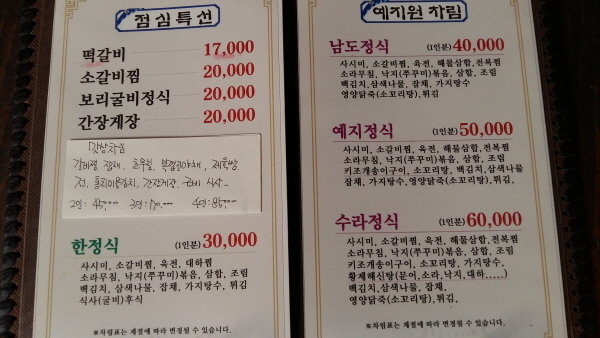 점심특선
떡갈비 17,000
소갈비찜 20,000
보리굴비정식 20,000
간장게장 20,000
맛상차림
갈비찜 잡채
전, 간장게장, 굴비 식사-
2인: 45,000 3인: 4인: 85,000
한정식 (1인분) 30,000
사시미, 소갈비찜, 육전, 대하찜
소라무침, 낙지(쭈꾸미)볶음, 삼합, 조림
백김치, 삼색나물, 잡채, 가지탕수, 튀김
식사(굴비)후식
※차림표는 계절에 따라 변경될 수 있습니다.
예지원 차림
남도정식 (1인분) 40,000
사시미, 소갈비찜, 육전, 해물삼합,전복찜
소라무침, 낙지(쭈꾸미)볶음, 삼합, 조림
백김치,삼색나물, 잡채, 가지탕수
영양닭죽(소꼬리탕),튀김
예지정식 (1인분) 50,000
사시미, 소갈비찜, 육전, 해물삼합,전복찜
소라무침, 낙지(쭈꾸미)볶음, 삼합, 조림
키조개송이구이, 소꼬리탕, 백김치,삼색나물
잡채, 가지탕수, 영양닭죽(소꼬리탕),튀김,
수라정식 (1인분) 60,000
사시미, 소갈비찜, 육전, 해물삼합,전복찜
소라무침, 낙지(쭈꾸미)볶음, 삼합, 조림
키조개송이구이, 소꼬리탕, 가지탕수,
황제해신탕(문어,소라,낙지,대하.....)
백김치,삼색나물, 잡채,
영양닭죽(소꼬리탕),튀김,
※차림표는 계절에 따라 변경될 수 있습니다.